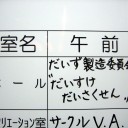 室名 午前
だいず製造委員会
ール
"だいすけ
だいさくせん"
リエーション室 サークルV.A.